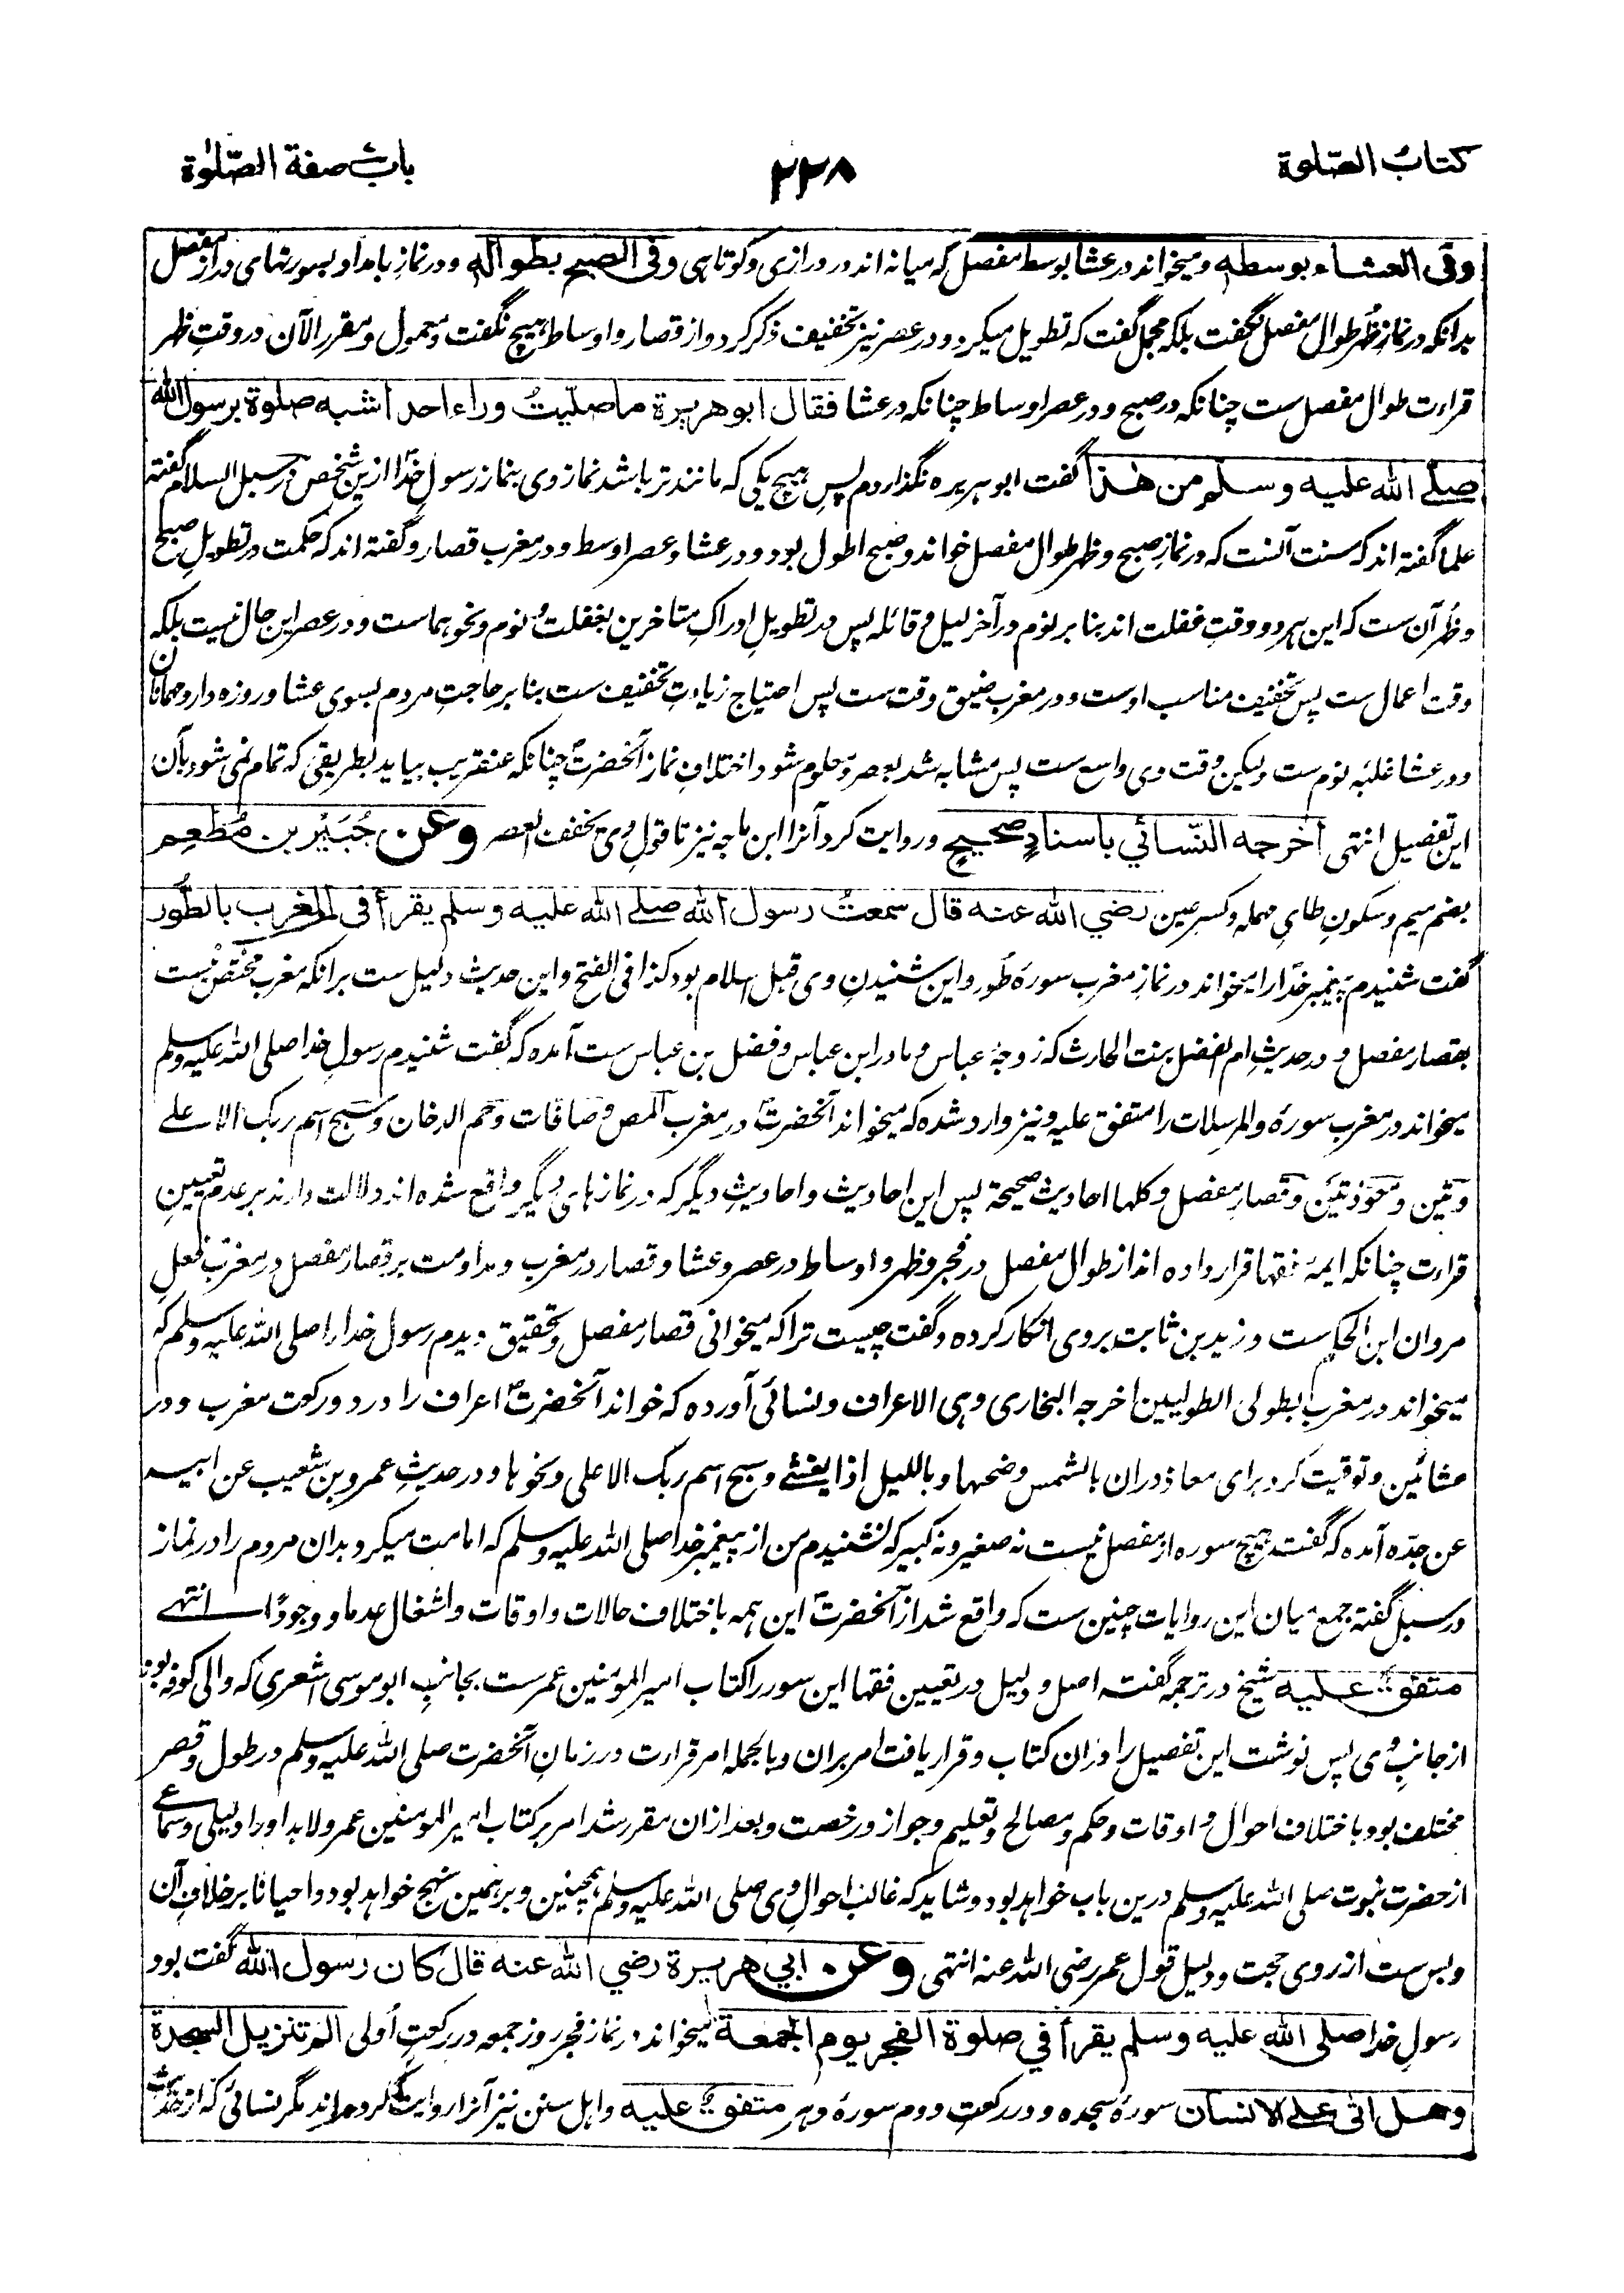 كتاب الصّلوة
٢٢٨
باب صفة الصّلوٰة
وفی العشاء بوسطه ومیخواند در عشا بوسط مفصل که میانه اند در درازی و کوتاهی وفی الصبح بطواله و در نماز بامداد بسورتهای دراز مفصل
بدانکه در نماز ظهر طوال مفصل نگفت بلکه مجمل گفت که تطویل میکرد و در عصر نیز تخفیف ذکر کرد و از قصار و اوساط هیچ نگفت و معمول و مقرر الآن در وقتِ ظهر
قراءت طوال مفصل ست چنانکه در صبح و در عصر اوساط چنانکه در عشا فقال ابو هریرة ما صلّیتُ وراء احد أشبه صلوة برسول الله
صلی الله علیه وسلم من هٰذا گفت ابو هریره نگذاردم پسِ هیچ یکی که مانندتر باشد نماز وی بنماز رسولِ خدا ازین شخص در سبل السلام گفته
علما گفته اند که سنت آنست که در نمازِ صبح و ظهر طوال مفصل خواند و صبح اطول بود و در عشا و عصر اوسط و در مغرب قصار و گفته اند که حکمت در تطویلِ صبح
و ظهر آن ست که این هر دو وقتِ غفلت اند بنا بر نوم در آخر لیل و قائله پس در تطویلِ ادراکِ متاخرین بغفلت و نوم و نحو هماست و در عصر این حال نیست بلکه
وقت اعمال ست پس تخفیف مناسب اوست و در مغرب ضیق وقت ست پس احتیاج زیادتِ تخفیف ست بنا بر حاجتِ مردم بسوی عشا و روزه دار و مهمانان
و در عشا غلبۀ نوم ست ولیکن وقت وی واسع ست پس مشابه شد بعصر و معلوم شود اختلافِ نماز آنحضرت چنانکه عنقریب بیاید بطریقی که تمام نمی شود بآن
این تفصیل انتهی أخرجه النّسائي باسنادٍ صحیحٍ و روایت کرد آنرا ابن ماجه نیز تا قول وی یخفف العصر وعن جُبَیْر بن مُطْعِم
بضم میم و سکونِ طای مهمله و کسر عین رضي الله عنه قال سمعتُ رسول الله صلی الله علیه وسلم یقرأ فی المغرب بالطُّور
گفت شنیدم پیغمبر خدا را میخواند در نمازِ مغرب سورۀ طور و این شنیدنِ وی قبل اسلام بود کذا فی الفتح و این حدیث دلیل ست برانکه مغرب مختص نیست
بقصار مفصل و در حدیثِ ام الفضل بنت الحارث که زوجۀ عباس و مادر ابن عباس و فضل بن عباس ست آمده که گفت شنیدم رسولِ خدا صلی الله علیه وسلم
میخواند در مغرب سورۀ والمرسلات را متفق علیه و نیز وارد شده که میخواند آنحضرت در مغرب المص و صافات و حم الدخان و سبح اسم ربک الاعلے
و تین و معوذتین و قصارِ مفصل و کلها احادیث صحیحة پس این احادیث و احادیثِ دیگر که در نمازهای دیگر واقع شده اند دلالت دارند بر عدم تعیینِ
قراءت چنانکه ایمۀ فقها قرار داده اند از طوال مفصل در فجر و ظهر و اوساط در عصر و عشا و قصار در مغرب و مداومت بر قصار مفصل در مغرب فعلِ
مروان ابن الحکم ست و زید بن ثابت بر وی انکار کرده و گفت چیست ترا که میخوانی قصار مفصل و تحقیق دیدم رسول خدا را صلی الله علیه وسلم که
میخواند در مغربِ بطولی الطولیین اخرجه البخاری وهی الاعراف و نسائی آورده که خواند آنحضرت اعراف را در دو رکعت مغرب و در
عشائین و توقیت کرد برای معاذ دران بالشمس وضحها و باللیل اذا یغشے و سبح اسم ربک الاعلی و نحوها و در حدیثِ عمرو بن شعیب عن ابیه
عن جدّه آمده که گفت هیچ سوره از مفصل نیست نه صغیر و نه کبیر که نشنیدم من از پیغمبر خدا صلی الله علیه وسلم که امامت میکرد بدان مردم را در نماز
در سبل گفته جمع میان این روایات چنین ست که واقع شد از آنحضرت این همه باختلاف حالات و اوقات و اشغال عدما و وجودًا انتهے
متفق علیه شیخ در ترجمه گفته اصل و دلیل در تعیین فقها این سور را کتاب امیر المومنین عمر ست بجانبِ ابو موسی اشعری که والی کوفه بود
از جانبِ وی پس نوشت این تفصیل را دران کتاب و قرار یافت امر بران و بالجمله امر قراءت در زمانِ آنحضرت صلی الله علیه وسلم در طول و قصر
مختلف بود باختلاف احوال و اوقات و حکم و مصالح و تعلیم و جواز و رخصت و بعد ازان مقرر شد امر بر کتاب امیر المومنین عمر و لابد او را دلیلی و سماعے
از حضرت نبوت صلی الله علیه وسلم درین باب خواهد بود و شاید که غالب احوالِ وی صلی الله علیه وسلم همچنین و بر همین نهج خواهد بود و احیانا بر خلافِ آن
و بس ست از روی حجت و دلیل قول عمر رضی الله عنه انتهی وعن ابي هریرة رضي الله عنه قال کان رسول الله گفت بود
رسولِ خدا صلی الله علیه وسلم یقرأ في صلوة الفجر یوم الجمعة میخواند در نماز فجر روز جمعه در رکعتِ أولی الم تنزیل السجدة
وهل اتی علے الانسان سورۀ سجده و در رکعتِ دوم سورۀ دهر متفق علیه و اهل سنن نیز آنرا روایت کرده اند مگر نسائی که از